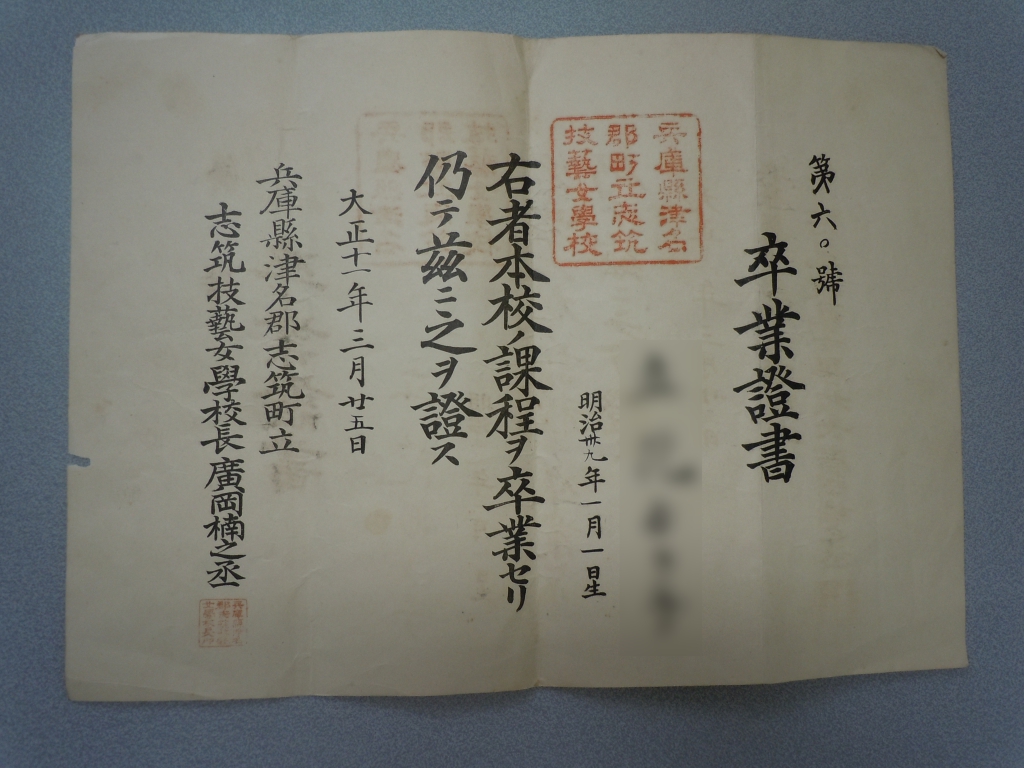 第六〇號
卒業證書
兵庫縣津名
郡町立志筑
技藝女學校
明治卅九年一月一日生
右者本校ノ課程ヲ卒業セリ
仍テ茲ニ之ヲ證ス
大正十一年三月廿五日
兵庫縣津名郡志筑町立
志筑技藝女學校長廣岡楠之丞